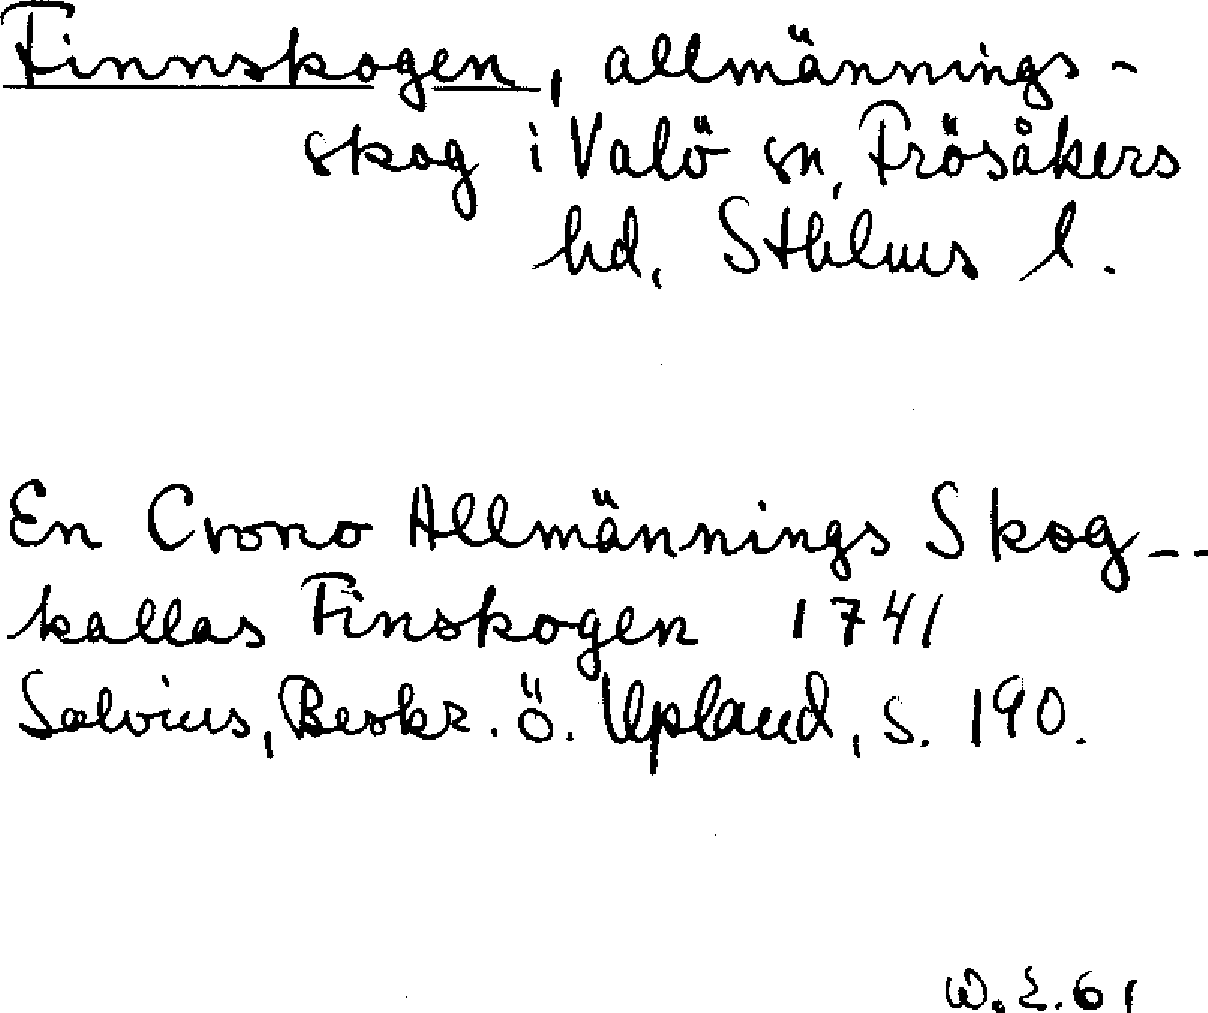 Finnskogen, allmännings-
skog i Valö sn, Frösåkers
hd, Sthlms l.
En Crono Allmännings Skog --
kallas Finskogen 1741
Salvius, Beskr. ö. Upland, S. 190.
W.E.61